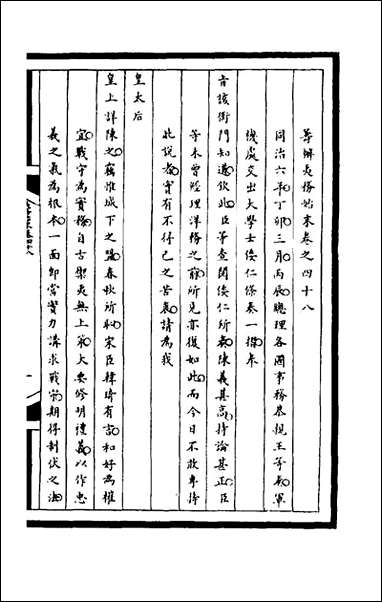 籌辦夷務始末卷之四十八
同治六年丁卯三月丙辰總理各國事務恭親王等奏軍
機處交出大學士倭仁條奏一摺奉
旨該衙門知道欽此臣等查閱倭仁所奏陳義甚高持論甚正臣
等未曾經理洋務之前所見亦復如此而今日不敢專持
此說者實有不得已之苦衷請為我
皇太后
皇上詳陳之竊惟城下之盟春秋所恥宋臣韓琦有言和好為權
宜戰守為實務自古禦夷無上策大要修明禮義以作忠
義之氣為根本一面卽當實力講求戰守期得制伏之法